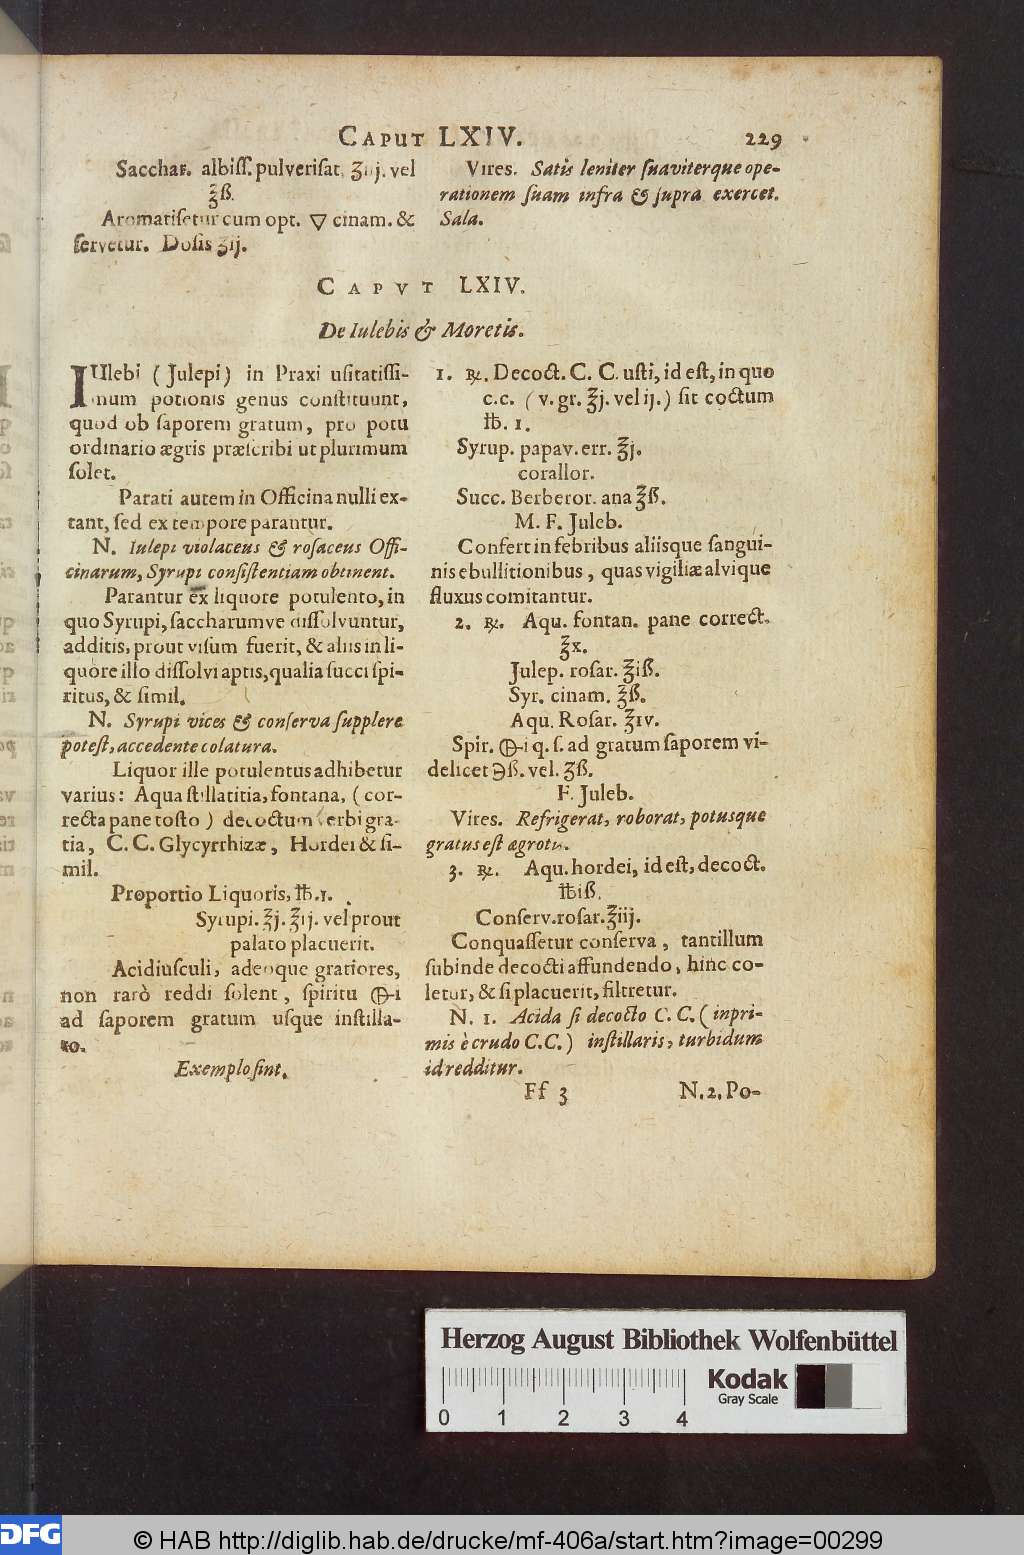 CAPUT LXIV. 229
Sacchar. albiss. pulverisat. ʒiij. vel
℥ß.
Aromatisetur cum opt. ▽ cinam. &
servetur. Dosis ʒij.
Vires. Satis leniter suaviterque ope-
rationem suam infra & supra exercet.
Sala.
CAPVT LXIV.
De Iulebis & Moretis.
IUlebi (Julepi) in Praxi usitatissi-
mum potionis genus constituunt,
quod ob saporem gratum, pro potu
ordinario ægris præscribi ut plurimum
solet.
Parati autem in Officina nulli ex-
tant, sed ex tempore parantur.
N. Iulepi violaceus & rosaceus Offi-
cinarum, Syrupi consistentiam obtinent.
Parantur ex liquore potulento, in
quo Syrupi, saccharumve dissolvuntur,
additis, prout visum fuerit, & aliis in li-
quore illo dissolvi aptis, qualia succi spi-
ritus, & simil.
N. Syrupi vices & conserva supplere
potest, accedente colatura.
Liquor ille potulentus adhibetur
varius: Aqua stillatitia, fontana, (cor-
recta pane tosto) decoctum herbi gra-
tia, C. C. Glycyrrhizæ, Hordei & si-
mil.
Proportio Liquoris, ℔.1.
Syrupi. ℥j. ℥ij. vel prout
palato placuerit.
Acidiusculi, adeoque gratiores,
non rarò reddi solent, spiritu 🜖i
ad saporem gratum usque instilla-
to.
Exemplo sint.
1. ℞. Decoct. C. C. usti, id est, in quo
c.c. (v. gr. ℥j. vel ij.) sit coctum
℔. 1.
Syrup. papav. err. ℥j.
corallor.
Succ. Berberor. ana ℥ß.
M. F. Juleb.
Confert in febribus aliisque sangui-
nis ebullitionibus, quas vigiliæ alvique
fluxus comitantur.
2. ℞. Aqu. fontan. pane correct.
℥x.
Julep. rosar. ℥iß.
Syr. cinam. ℥ß.
Aqu. Rosar. ℥iv.
Spir. 🜖i q. s. ad gratum saporem vi-
delicet ℈ß. vel. ʒß.
F. Juleb.
Vires. Refrigerat, roborat, potusque
gratus est ægrotis.
3. ℞. Aqu. hordei, id est, decoct.
℔iß.
Conserv. rosar. ℥iij.
Conquassetur conserva, tantillum
subinde decocti affundendo, hinc co-
letur, & si placuerit, filtretur.
N. 1. Acida si decocto C. C. (inpri-
mis è crudo C.C.) instillaris, turbidum
id redditur.
Ff 3 N. 2. Po-
Herzog August Bibliothek Wolfenbüttel
0 1 2 3 4
Kodak
Gray Scale
DFG
© HAB http://diglib.hab.de/drucke/mf-406a/start.htm?image=00299